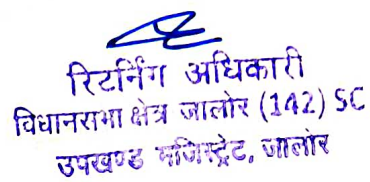 रिटर्निंग अधिकारी
विधानसभा क्षेत्र जालोर (142) SC
उपखण्ड मजिस्ट्रेट, जालोर